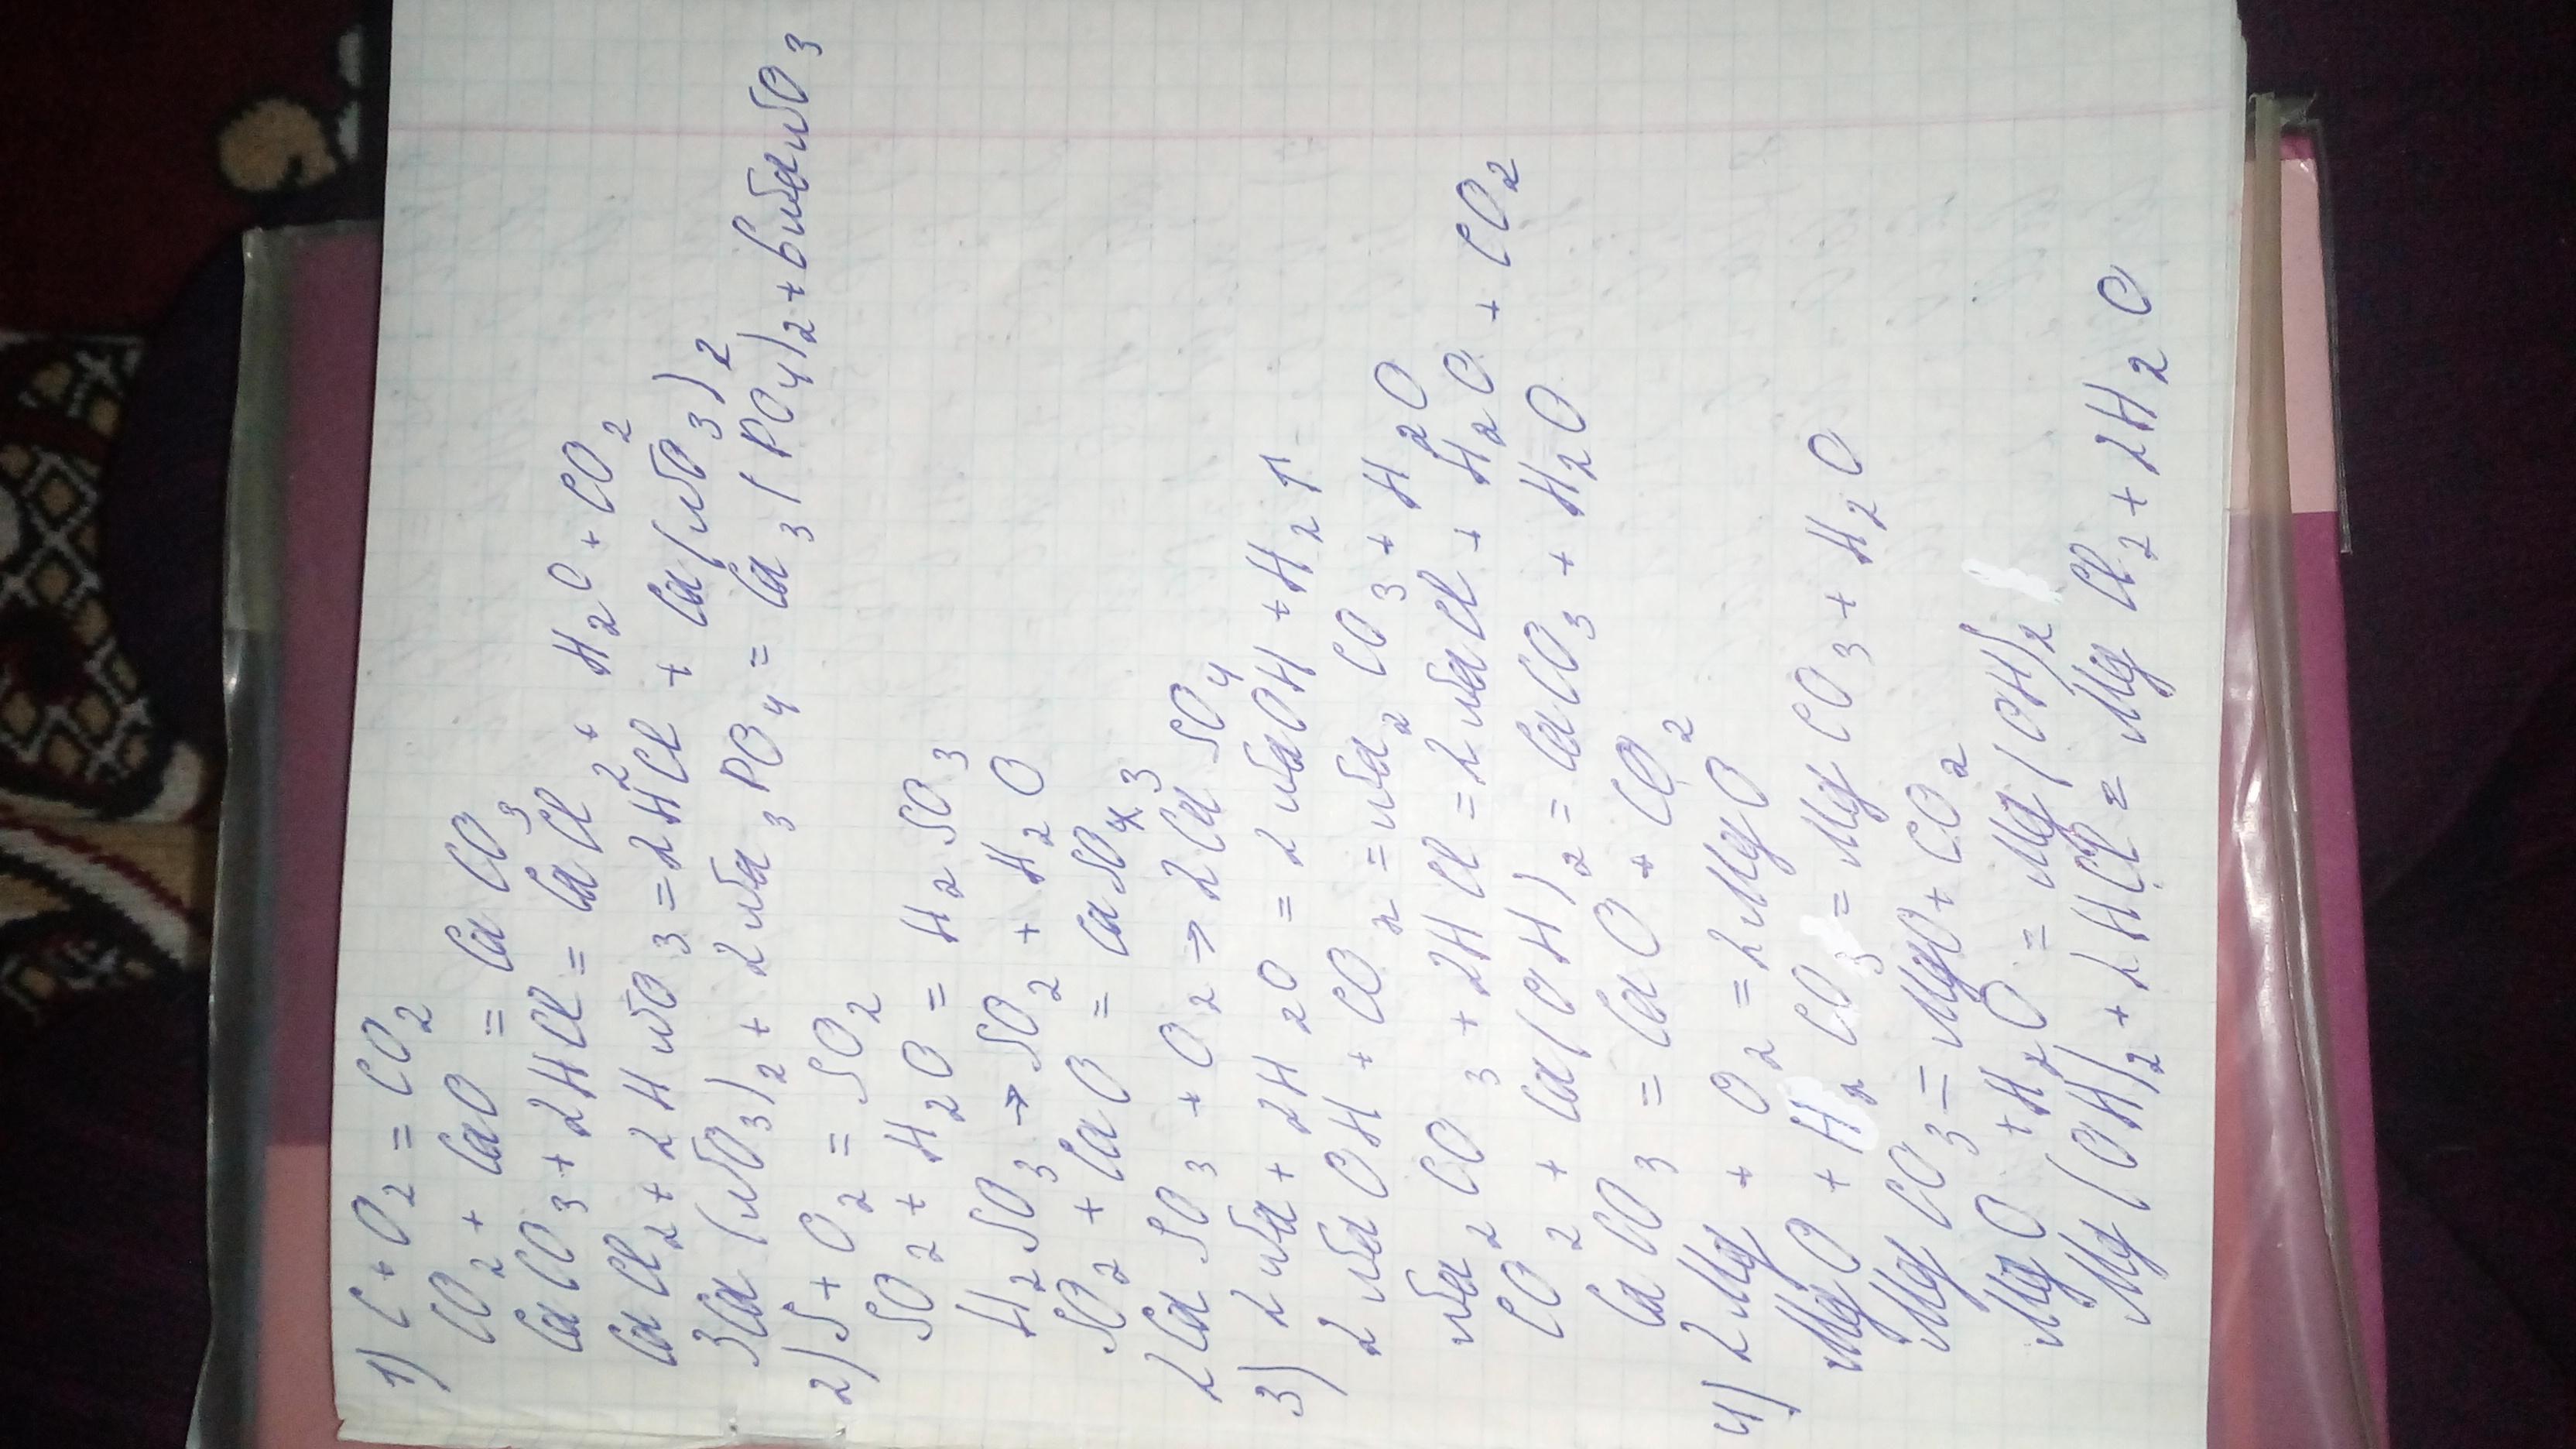 1) C + O2 = CO2
CO2 + CaO = CaCO3
CaCO3 + 2HCl = CaCl2 + H2O + CO2
CaCl2 + 2HNO3 = 2HCl + Ca(NO3)2
3Ca(NO3)2 + 2Na3PO4 = Ca3(PO4)2 + 6NaNO3
2) S + O2 = SO2
SO2 + H2O = H2SO3
H2SO3 → SO2 + H2O
SO2 + CaO = CaSO3
2CaSO3 + O2 → 2CaSO4
3) 2Na + 2H2O = 2NaOH + H2↑
2NaOH + CO2 = Na2CO3 + H2O
Na2CO3 + 2HCl = 2NaCl + H2O + CO2
CO2 + Ca(OH)2 = CaCO3 + H2O
CaCO3 = CaO + CO2
4) 2Mg + O2 = 2MgO
MgO + H2CO3 = MgCO3 + H2O
MgCO3 = MgO + CO2
MgO + H2O = Mg(OH)2
Mg(OH)2 + 2HCl = MgCl2 + 2H2O